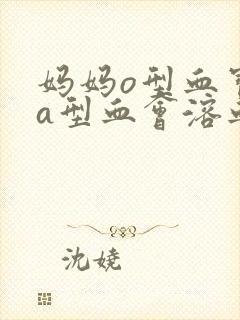 妈妈o型血宝
a型血会溶血
沈娆